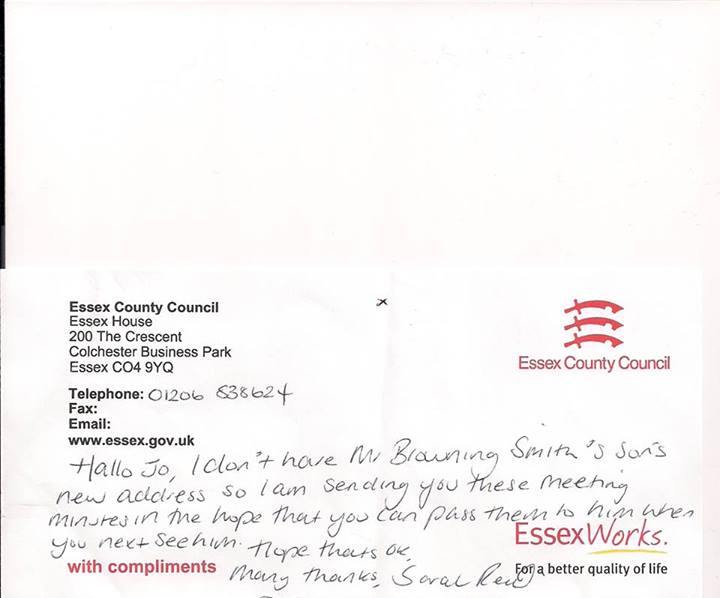 Essex County Council
Essex House
200 The Crescent
Colchester Business Park
Essex CO4 9YQ
Telephone: 01206 838624
Fax:
Email:
www.essex.gov.uk
Essex County Council
Hallo Jo, I don't have Mr Browning Smith's son's
new address so I am sending you these meeting
minutes in the hope that you can pass them to him when
you next see him. Hope thats ok,
Many thanks, Sarah
with compliments
EssexWorks.
For a better quality of life